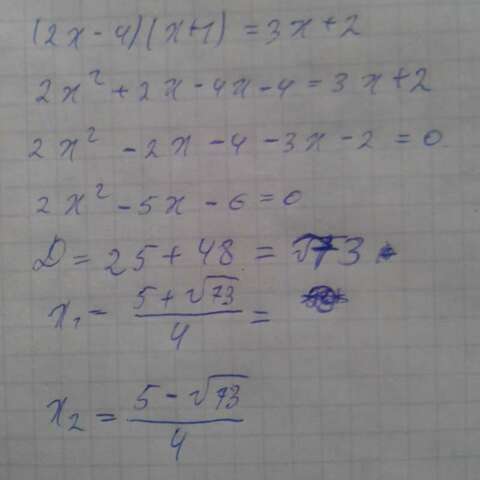 (2x-4)(x+1) = 3x+2
2x² + 2x - 4x - 4 = 3x+2
2x² - 2x - 4 - 3x - 2 = 0
2x² - 5x - 6 = 0
D = 25 + 48 = √73
x₁ = (5+√73)/4 =
x₂ = (5-√73)/4